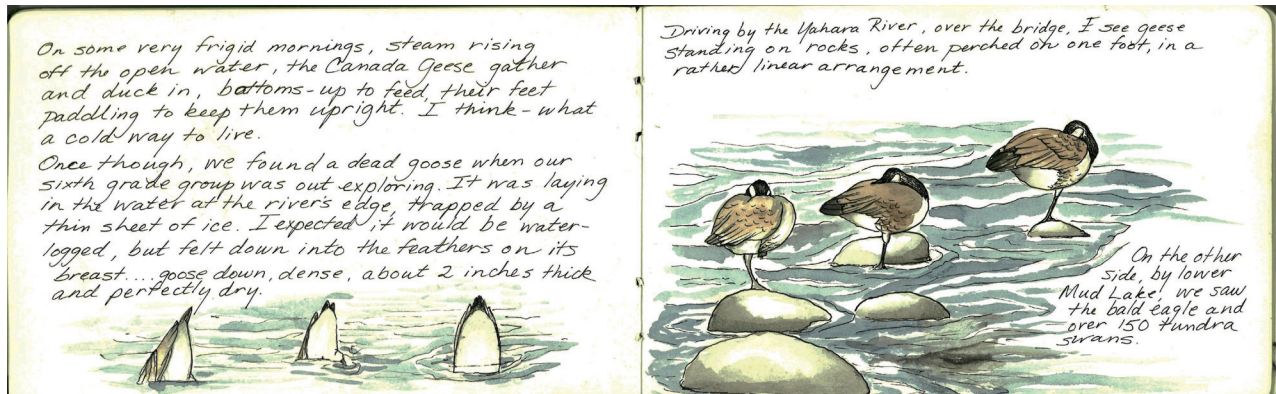 On some very frigid mornings, steam rising
off the open water, the Canada Geese gather
and duck in, bottoms-up to feed, their feet
paddling to keep them upright. I think - what
a cold way to live.
Once though, we found a dead goose when our
sixth grade group was out exploring. It was laying
in the water at the river's edge, trapped by a
thin sheet of ice. I expected it would be water-
logged, but felt down into the feathers on its
breast....goose down, dense, about 2 inches thick
and perfectly dry.
Driving by the Yahara River, over the bridge, I see geese
standing on rocks, often perched on one foot, in a
rather linear arrangement.
On the other
side, by lower
Mud Lake, we saw
the bald eagle and
over 150 tundra
swans.